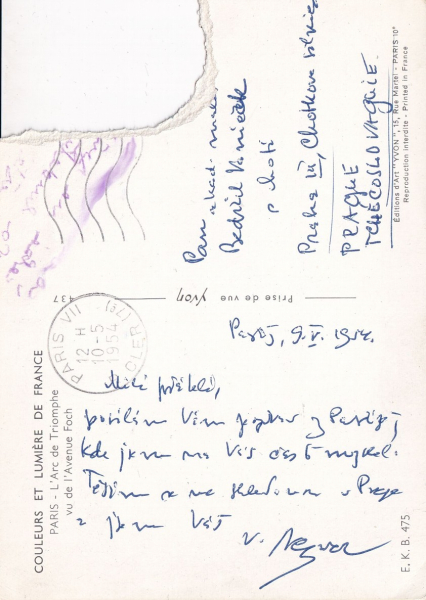 Paříž, 9.V. 1954.
Milí přátelé,
posílám Vám pozdrav z Paříže,
kde jsem na Vás často myslel.
Těším se na shledanou v Praze
a jsem Váš
V. Nezval
Pan
akad. mal.
Bedřich
s chotí
Praha III, Chotkova silnice
PRAGUE
TCHÉCOSLOVAQUIE
Editions d'Art "YVON", 15, Rue Martel - PARIS 10e
Reproduction interdite - Printed in France
Prise de vue yvon
437
PARIS VII
12 H
10-5
1954
COULEURS ET LUMIÈRE DE FRANCE
PARIS - L'Arc de Triomphe
vu de l'Avenue Foch
E. K. B. 475